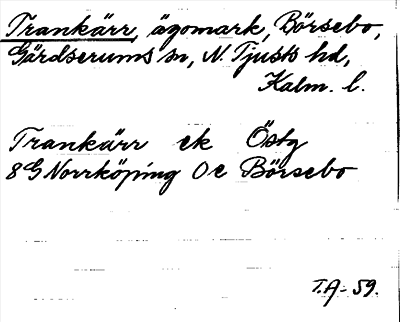 Trankärr, ägomark, Börsebo,
Gärdserums sn, N. Tjusts hd,
Kalm. l.
Trankärr ek Östg
8G Norrköping 0e Börsebo
T.A. - 59.